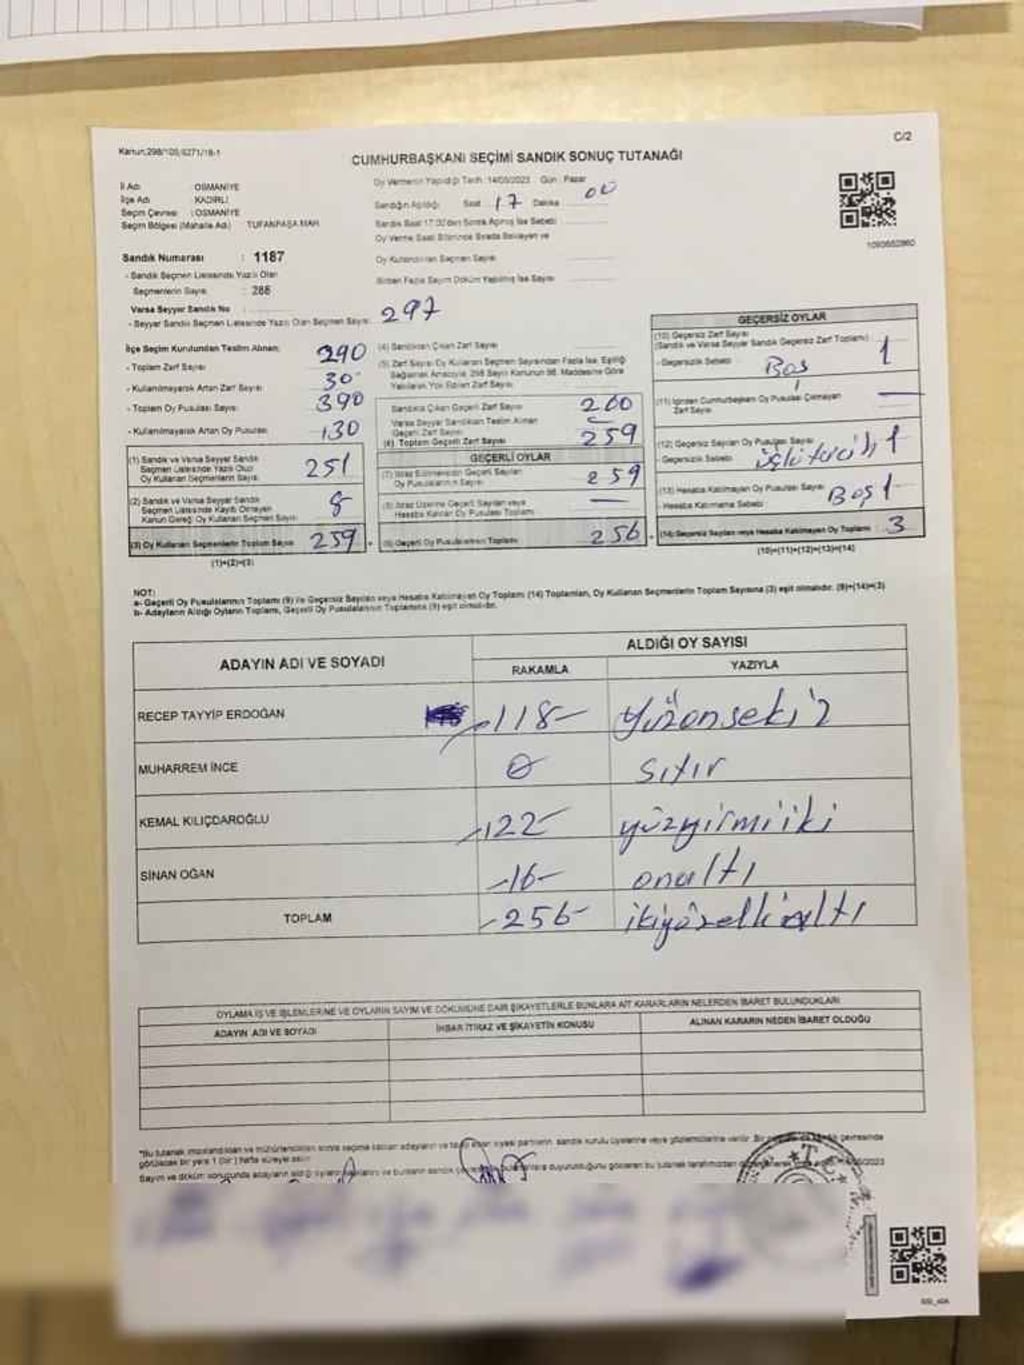 C/2
Kanun:298/105,6271/18-1
CUMHURBAŞKANI SEÇİMİ SANDIK SONUÇ TUTANAĞI
İl Adı OSMANİYE
İlçe Adı KADİRLİ
Seçim Çevresi : OSMANİYE
Seçim Bölgesi (Mahalle Adı) TUFANPAŞA MAH.
Oy Vermenin Yapıldığı Tarih: 14/05/2023 Gün: Pazar
Sandığın Açıldığı Saat 17 Dakika 00
Sandık Saat 17:00'den Sonra Açılmış İse Sebebi
Oy Verme Saati Bitiminde Sırada Bekleyen ve
Oy Kullandırılan Seçmen Sayısı
Birden Fazla Sayım Döküm Yapılmış İse Sayısı
1093652860
Sandık Numarası : 1187
- Sandık Seçmen Listesinde Yazılı Olan
Seçmenlerin Sayısı : 288
Varsa Seyyar Sandık No
- Seyyar Sandık Seçmen Listesinde Yazılı Olan Seçmen Sayısı 297
İlçe Seçim Kurulundan Teslim Alınan;
- Toplam Zarf Sayısı 290
- Kullanılmayarak Artan Zarf Sayısı 30
- Toplam Oy Pusulası Sayısı 390
- Kullanılmayarak Artan Oy Pusulası 130
(1) Sandık ve Varsa Seyyar Sandık
Seçmen Listesinde Yazılı Olup
Oy Kullanan Seçmenlerin Sayısı 251
(2) Sandık ve Varsa Seyyar Sandık
Seçmen Listesinde Kayıtlı Olmayan
Kanun Gereği Oy Kullanan Seçmen Sayısı 8
(3) Oy Kullanan Seçmenlerin Toplam Sayısı 259
(1)+(2)=(3)
(4) Sandıktan Çıkan Zarf Sayısı
(5) Zarf Sayısı Oy Kullanan Seçmen Sayısından Fazla İse, Eşitliği
Sağlamak Amacıyla, 298 Sayılı Kanunun 98. Maddesine Göre
Yakılarak Yok Edilen Zarf Sayısı
Sandıkta Çıkan Geçerli Zarf Sayısı 260
Varsa Seyyar Sandıktan Teslim Alınan
Geçerli Zarf Sayısı
(6) Toplam Geçerli Zarf Sayısı 259
GEÇERLİ OYLAR
(7) İtiraz Edilmeden Geçerli Sayılan
Oy Pusulalarının Sayısı 259
(8) İtiraz Üzerine Geçerli Sayılan veya
Hesaba Katılan Oy Pusulası Toplamı —
(9) Geçerli Oy Pusulalarının Toplamı 256
GEÇERSİZ OYLAR
(10) Geçersiz Zarf Sayısı
(Sandık ve Varsa Seyyar Sandık Geçersiz Zarf Toplamı) 1
- Geçersizlik Sebebi Boş
(11) İçinden Cumhurbaşkanı Oy Pusulası Çıkmayan
Zarf Sayısı —
(12) Geçersiz Sayılan Oy Pusulası Sayısı
- Geçersizlik Sebebi 1
(13) Hesaba Katılmayan Oy Pusulası Sayısı
- Hesaba Katılmama Sebebi Boş 1
(14) Geçersiz Sayılan veya Hesaba Katılmayan Oy Toplamı 3
(10)+(11)+(12)+(13)=(14)
NOT:
a- Geçerli Oy Pusulalarının Toplamı (9) ile Geçersiz Sayılan veya Hesaba Katılmayan Oy Toplamı (14) Toplamları, Oy Kullanan Seçmenlerin Toplam Sayısına (3) eşit olmalıdır. (9)+(14)=(3)
b- Adayların Aldığı Oyların Toplamı, Geçerli Oy Pusulalarının Toplamına (9) eşit olmalıdır.
ADAYIN ADI VE SOYADI ALDIĞI OY SAYISI
RAKAMLA YAZIYLA
RECEP TAYYİP ERDOĞAN -118- Yüzonsekiz
MUHARREM İNCE 0 sıfır
KEMAL KILIÇDAROĞLU -122- yüzyirmiiki
SİNAN OĞAN -16- onaltı
TOPLAM -256- ikiyüzellialtı
OYLAMA İŞ VE İŞLEMLERİNE VE OYLARIN SAYIM VE DÖKÜMÜNE DAİR ŞİKAYETLERLE BUNLARA AİT KARARLARIN NELERDEN İBARET BULUNDUKLARI
ADAYIN ADI VE SOYADI İHBAR İTİRAZ VE ŞİKAYETİN KONUSU ALINAN KARARIN NEDEN İBARET OLDUĞU